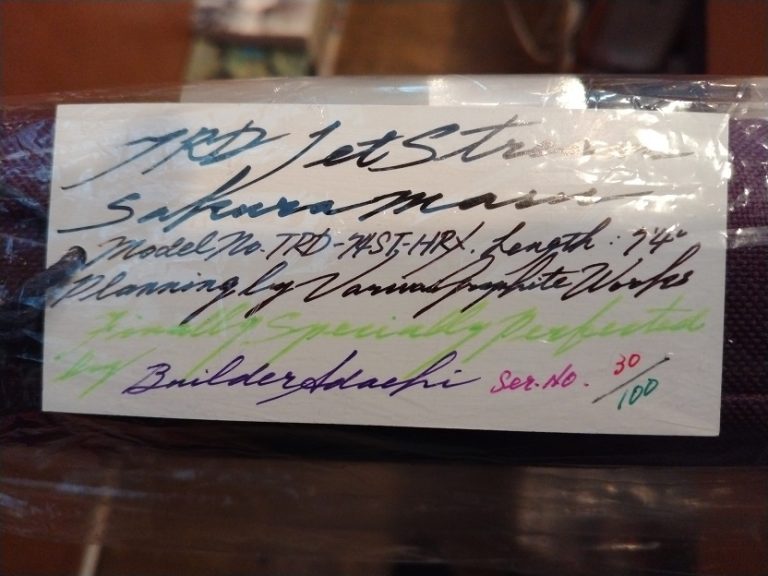 TRD JetStream
Sakuramasu
Model No. TRD-74ST-HRX. Length: 7'4"
Planning by Varivas Graphite Works
Finally Specially Perfected
by Builder Adachi Ser.No. 30/100